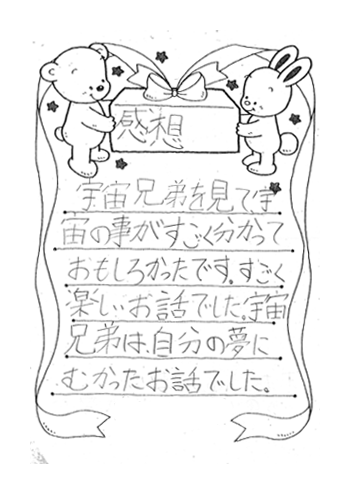 感想
宇宙兄弟を見て宇
宙の事がすごく分かって
おもしろかったです。すごく
楽しいお話でした。宇宙
兄弟は、自分の夢に
むかったお話でした。